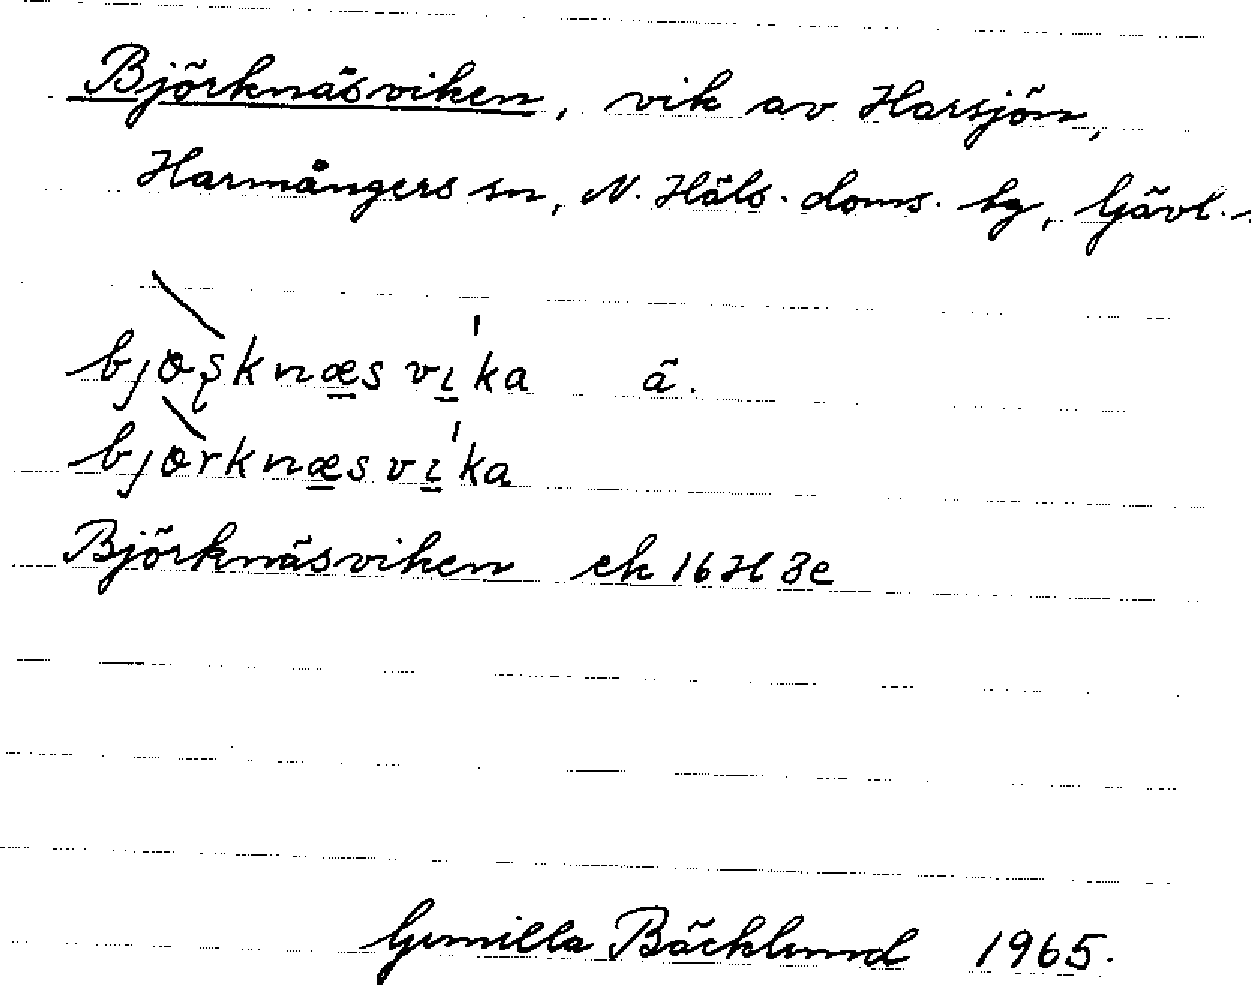 Björknäsviken, vik av Harsjön,
Harmångers sn, N. Häls. doms. hg, Gävl.
bjɵʂknæsvi̱ka ä.
bjɵrknæsvi̱ka
Björknäsviken ek 16H 3e
Gunilla Bäcklund 1965.